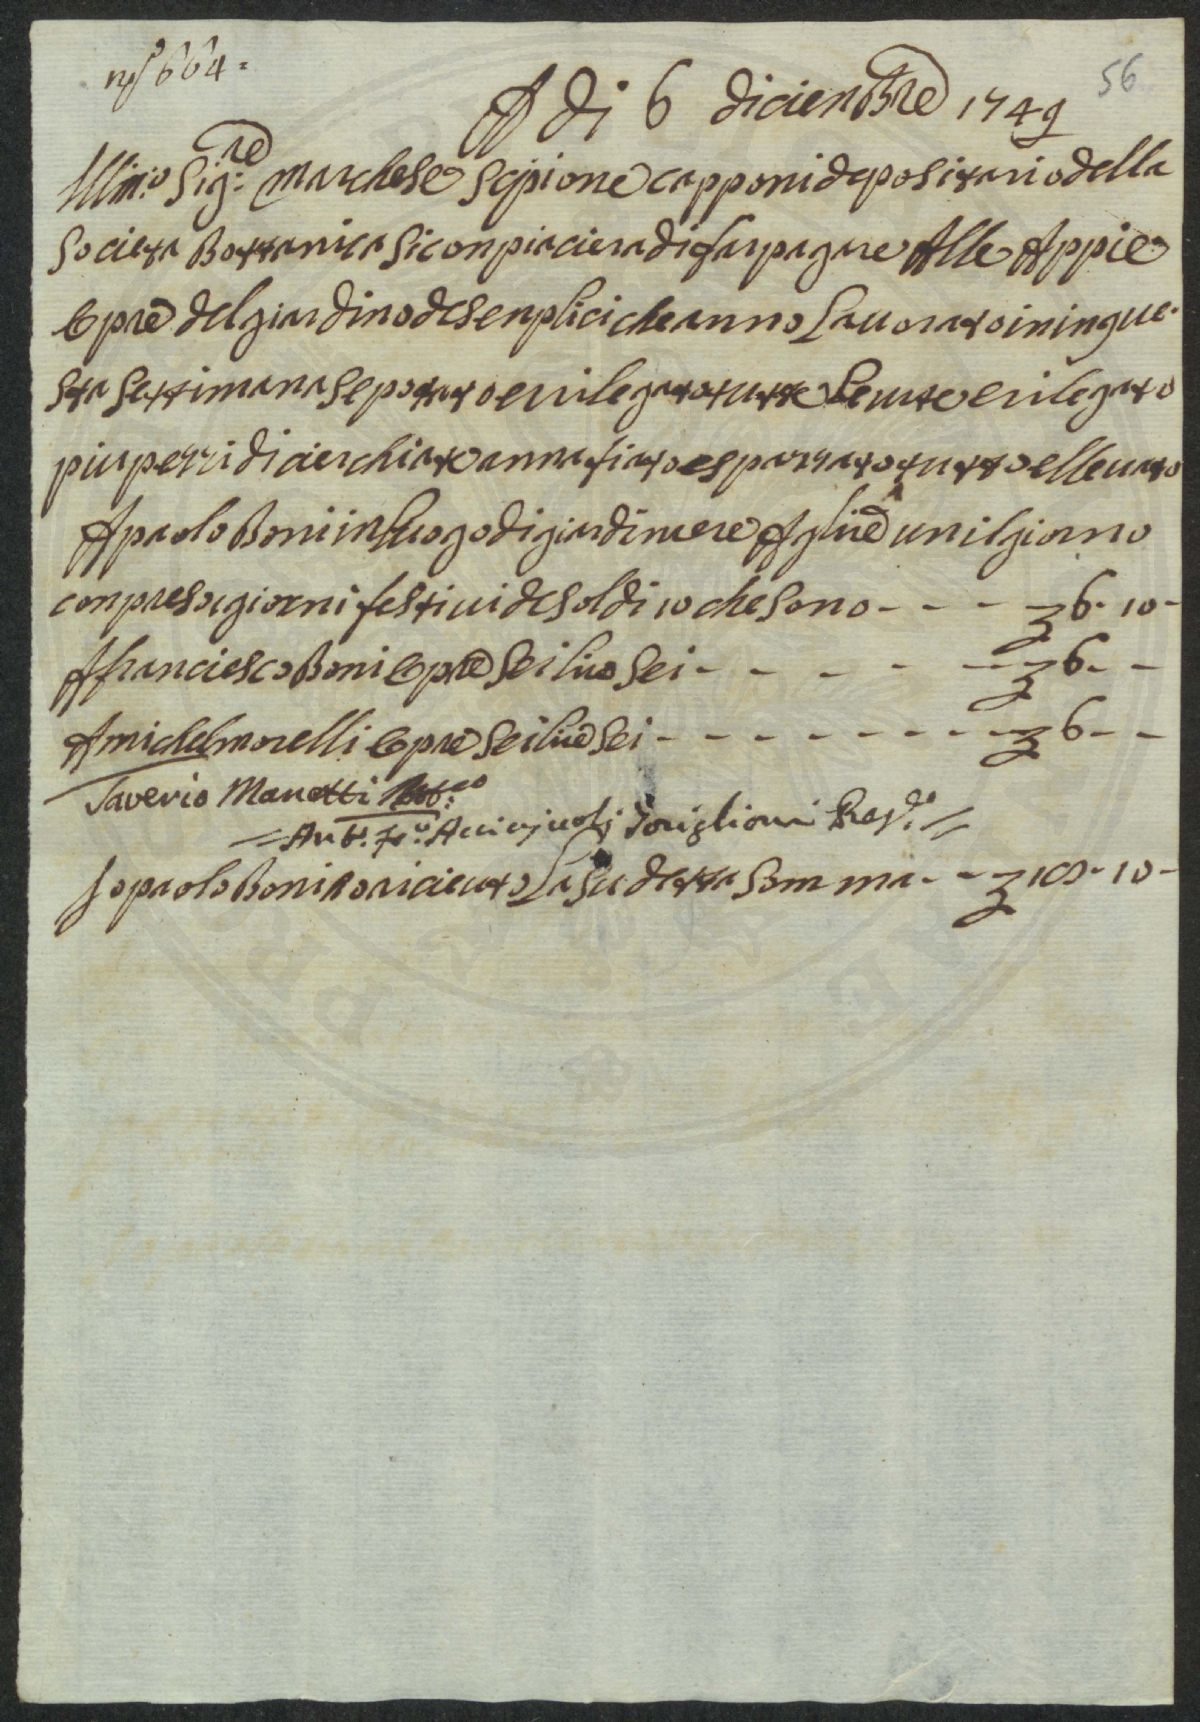 n° 664 =
56
A di 6 diciembre 1749
Illm.o Sig.re Marchese Scipione capponi depositario della
Societa Bottanica si conpiaciera di far pagare Alle Appie
Opre del giardino de senplici che anno Lauorato in in que-
sta settimana se potato e rilegato tutte le uite e rilegato
piu pezzi di cierchiate annafiato e spazzato tutto elleuato
A paolo Boni in luogo di giardiniere A lire una il giorno
conpreso i giorni festiui de soldi 10 che sono - - - - 6. 10 -
A franciesco Boni Opre sei lire sei - - - - - 6 - -
A michel morelli Opre sei lire sei - - - - - - - - - 6 - -
Saverio Manetti
= Ant. Fr. Acciajuoli Toriglioni =
Io paolo Boni o riceuto La su detta Somma - - 18 - 10 -